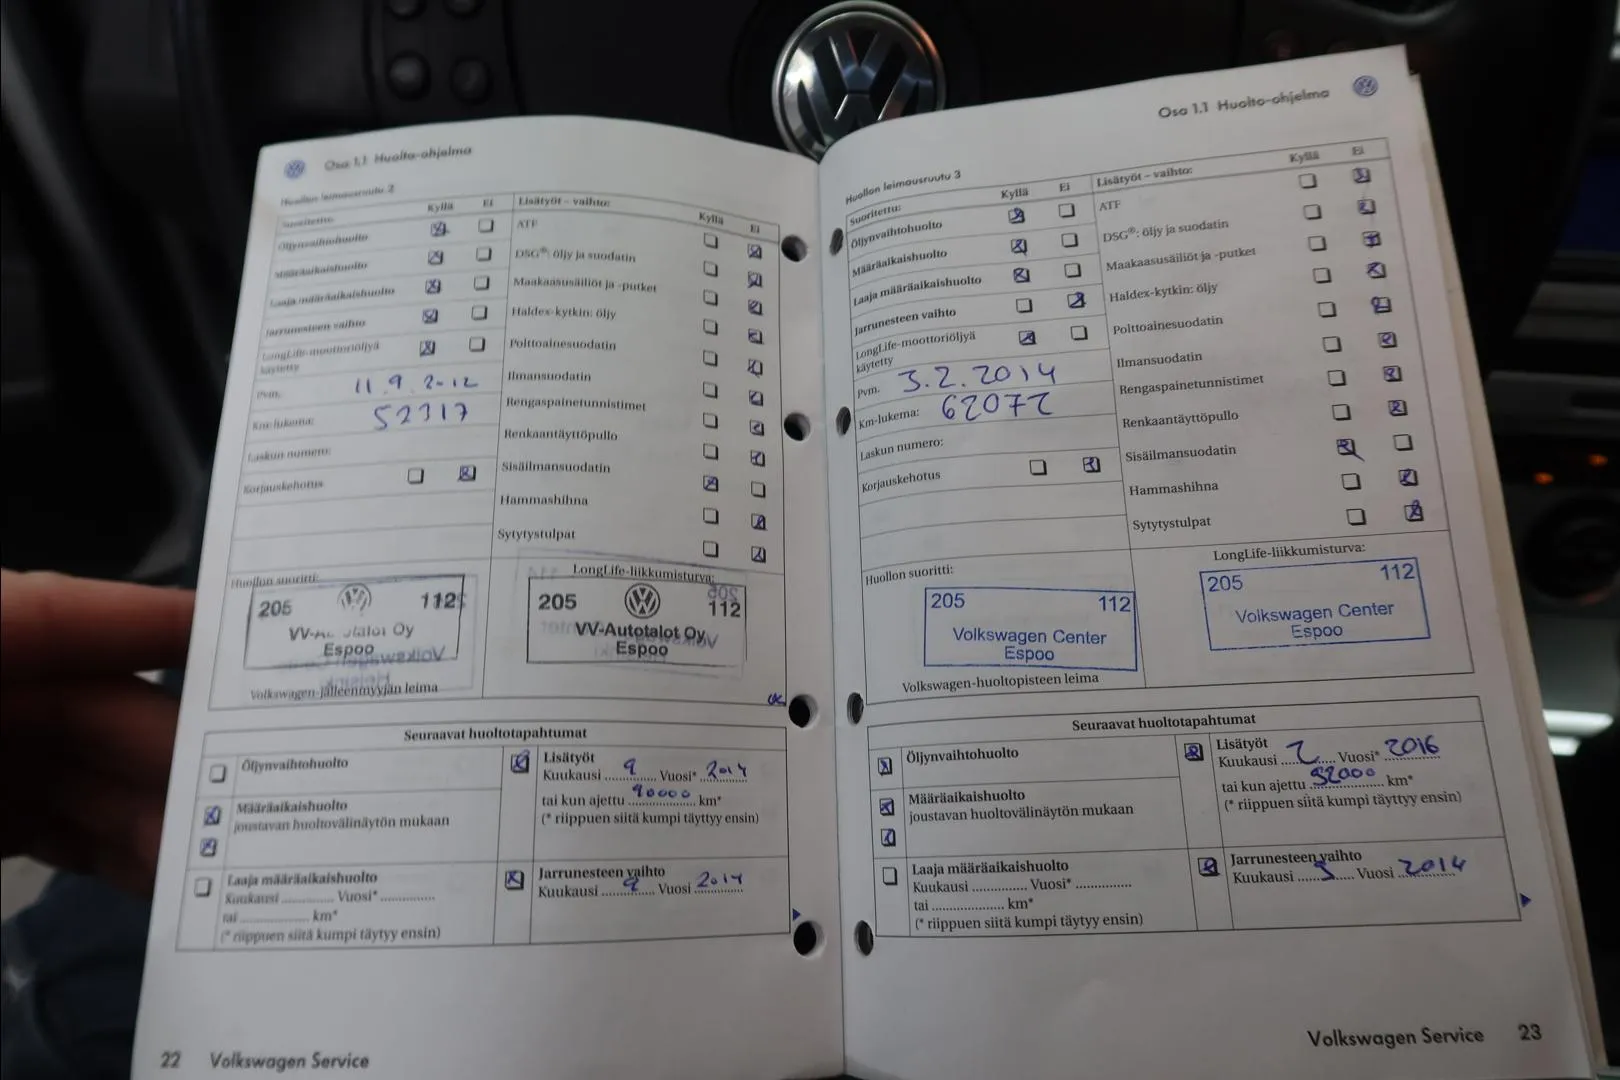 Osa 1.1 Huolto-ohjelma
Huollon leimausruutu 2
Suoritettu: Kyllä Ei
Öljynvaihtohuolto
Määräaikaishuolto
Laaja määräaikaishuolto
Jarrunesteen vaihto
LongLife-moottoriöljyä
käytetty
Pvm. 11.9.2012
Km-lukema: 52317
Laskun numero:
Korjauskehotus
Lisätyöt – vaihto: Kyllä Ei
ATF
DSG®: öljy ja suodatin
Maakaasusäiliöt ja -putket
Haldex-kytkin: öljy
Polttoainesuodatin
Ilmansuodatin
Rengaspainetunnistimet
Renkaantäyttöpullo
Sisäilmansuodatin
Hammashihna
Sytytystulpat
Huollon suoritti:
205 112
VV-Autotalot Oy
Espoo
Volkswagen-jälleenmyyjän leima
LongLife-liikkumisturva:
205 112
VV-Autotalot Oy
Espoo
Seuraavat huoltotapahtumat
Öljynvaihtohuolto
Määräaikaishuolto
joustavan huoltovälinäytön mukaan
Laaja määräaikaishuolto
Kuukausi ............. Vuosi* .............
tai ................. km*
(* riippuen siitä kumpi täytyy ensin)
Lisätyöt
Kuukausi 9 Vuosi* 2014
tai kun ajettu 90000 km*
(* riippuen siitä kumpi täyttyy ensin)
Jarrunesteen vaihto
Kuukausi 9 Vuosi 2014
22 Volkswagen Service
Osa 1.1 Huolto-ohjelma
Huollon leimausruutu 3
Suoritettu: Kyllä Ei
Öljynvaihtohuolto
Määräaikaishuolto
Laaja määräaikaishuolto
Jarrunesteen vaihto
LongLife-moottoriöljyä
käytetty
Pvm. 3.2.2014
Km-lukema: 62072
Laskun numero:
Korjauskehotus
Lisätyöt – vaihto: Kyllä Ei
ATF
DSG®: öljy ja suodatin
Maakaasusäiliöt ja -putket
Haldex-kytkin: öljy
Polttoainesuodatin
Ilmansuodatin
Rengaspainetunnistimet
Renkaantäyttöpullo
Sisäilmansuodatin
Hammashihna
Sytytystulpat
Huollon suoritti:
205 112
Volkswagen Center
Espoo
Volkswagen-huoltopisteen leima
LongLife-liikkumisturva:
205 112
Volkswagen Center
Espoo
Seuraavat huoltotapahtumat
Öljynvaihtohuolto
Määräaikaishuolto
joustavan huoltovälinäytön mukaan
Laaja määräaikaishuolto
Kuukausi .............. Vuosi* ..............
tai .................. km*
(* riippuen siitä kumpi täytyy ensin)
Lisätyöt
Kuukausi 2 Vuosi* 2016
tai kun ajettu 92000 km*
(* riippuen siitä kumpi täyttyy ensin)
Jarrunesteen vaihto
Kuukausi 5 Vuosi 2014
Volkswagen Service 23